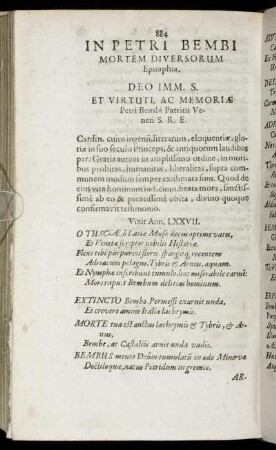 884
IN PETRI BEMBI
MORTEM DIVERSORUM
Epitaphia.
DEO IMM. S.
ET VIRTUTI, AC MEMORIÆ
Petri Bembi Patritii Ve-
neti S. R. E.
Cardin. cuius ingenii, literarum, eloquentiæ, glo-
riæ in suo seculo Princeps, & antiquorum laudibus
par: Gratia autem in amplissimo ordine, in mori-
bus probitas, humanitas, liberalitas, supra com-
munem modum semper existimata sunt. Quod de
eius vita hominum iudicium, beata mors, sanctissi-
mè ab eo & pacatissimè obita, divino quoque
confirmavit testimonio.
Vixit Ann. LXXVII.
O TUSCIÆ, ô Latiæ Musæ decus optime vates,
Et Venetæ scriptor nobilis Historiæ.
Flens tibi par parenti flores, spargata, recentem
Adriacum pelagus, Tybris & Arnus, aquam.
Et Nymphæ inscribunt tumulo, hoc miserabile carmen:
Mors rapuit Bembum delitias hominum.
EXTINCTO Bembo Permessi exaruit unda,
Et crevere amnes Italiæ lachrymis.
MORTE tua est auctus lachrymis & Tybris, & Ar-
nus,
Bembe, at Castaliis aruit unda vadis.
BEMBUS mente Deûm tumulatur in æde Minervæ
Doctiloquæ, natus Pieridum in gremio.
AR-